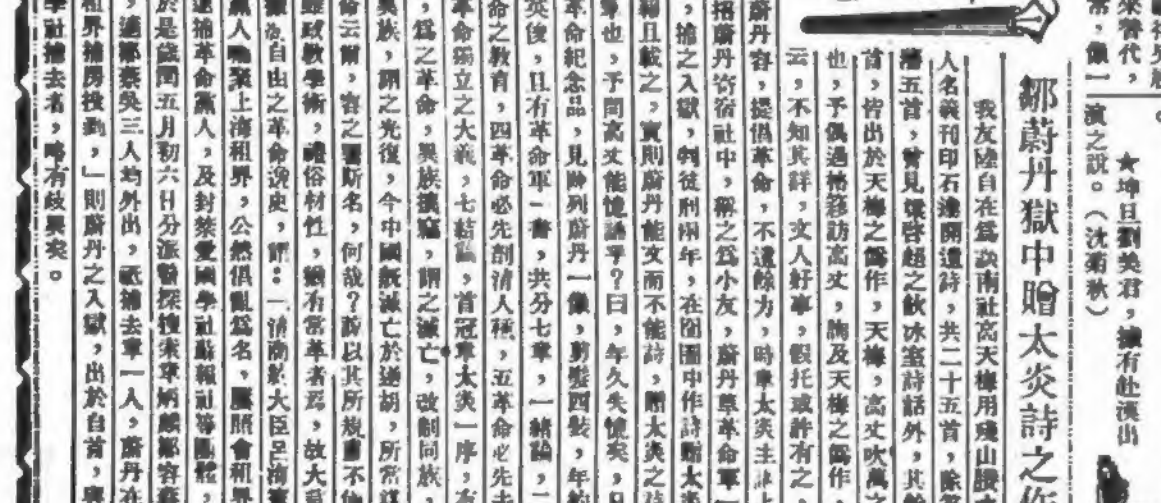 ★坤旦劉美君，擬有赴漢出
演之說。（沈菊秋）
鄒蔚丹獄中贈太炎詩之
我友陸自在爲談南社高天梅用殘山
人名義刊印石達開遺詩，共二十五首，除
五首，曾見梁啓超之飲冰室詩話外，其餘
首，皆出於天梅之僞作，天梅，高丈吹萬之
也，予偶過格簃訪高丈，詢及天梅之僞作，
云，不知其詳，文人好事，假托或許有之，
蔚丹容，提倡革命，不遺餘力，時章太炎主
招蔚丹寄宿社中，稱之爲小友，蔚丹草革命軍一
，捕之入獄，判徒刑兩年，在囹圄中作詩贈太炎
報且載之，實則蔚丹能文而不能詩，贈太炎之詩
筆也，予問高丈能憶誦乎？曰，年久失憶矣，
革命紀念品，見陳列蔚丹一像，剪髮西裝，年約
英後，且有革命軍一書，共分七章，一緒論，二
命之教育，四革命必先剖清人種，五革命必先去
革命獨立之大義，七結論，首冠章太炎一序，有
，爲之革命，異族攘竊，謂之滅亡，改制同族，
異族，謂之光復，今中國旣滅亡於逆胡，所當謀
命云爾，容之署斯名，何哉？諒以其所規畫不僅
政教學術，禮俗材性，猶有當革者焉，故大言
自由之革命逸史，謂：「淸商約大臣呂海寰
黨人嘯聚上海租界，公然倡亂爲名，照會租界
逮捕革命黨人，及封禁愛國學社蘇報社等團體，
於是歲閏五月初六日分派警探搜索章炳麟鄒容蔡
，適鄒蔡吳三人均外出，祇捕去章一人，蔚丹在
租界捕房投到，」則蔚丹之入獄，出於自首，與
學社捕去者，略有歧異矣。